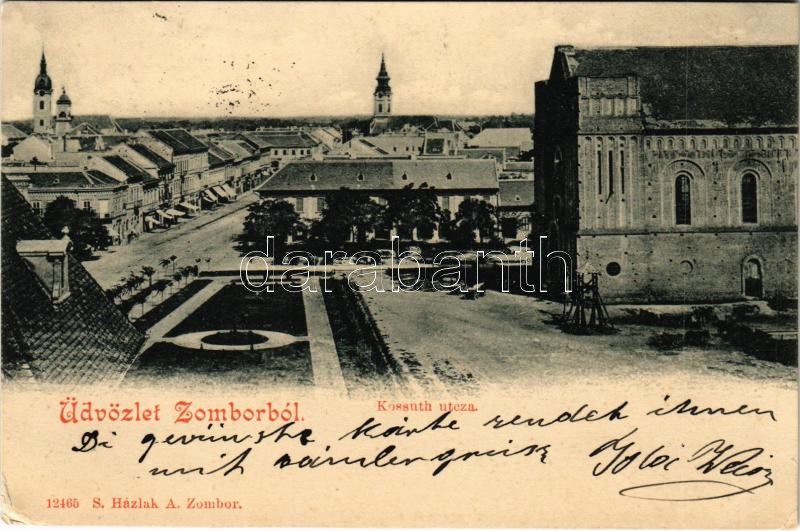 darabanth
Üdvözlet Zomborból.
Kossuth utcza.
Die gewünschte Karte sendet Ihnen
mit
12465 S. Házlak A. Zombor.